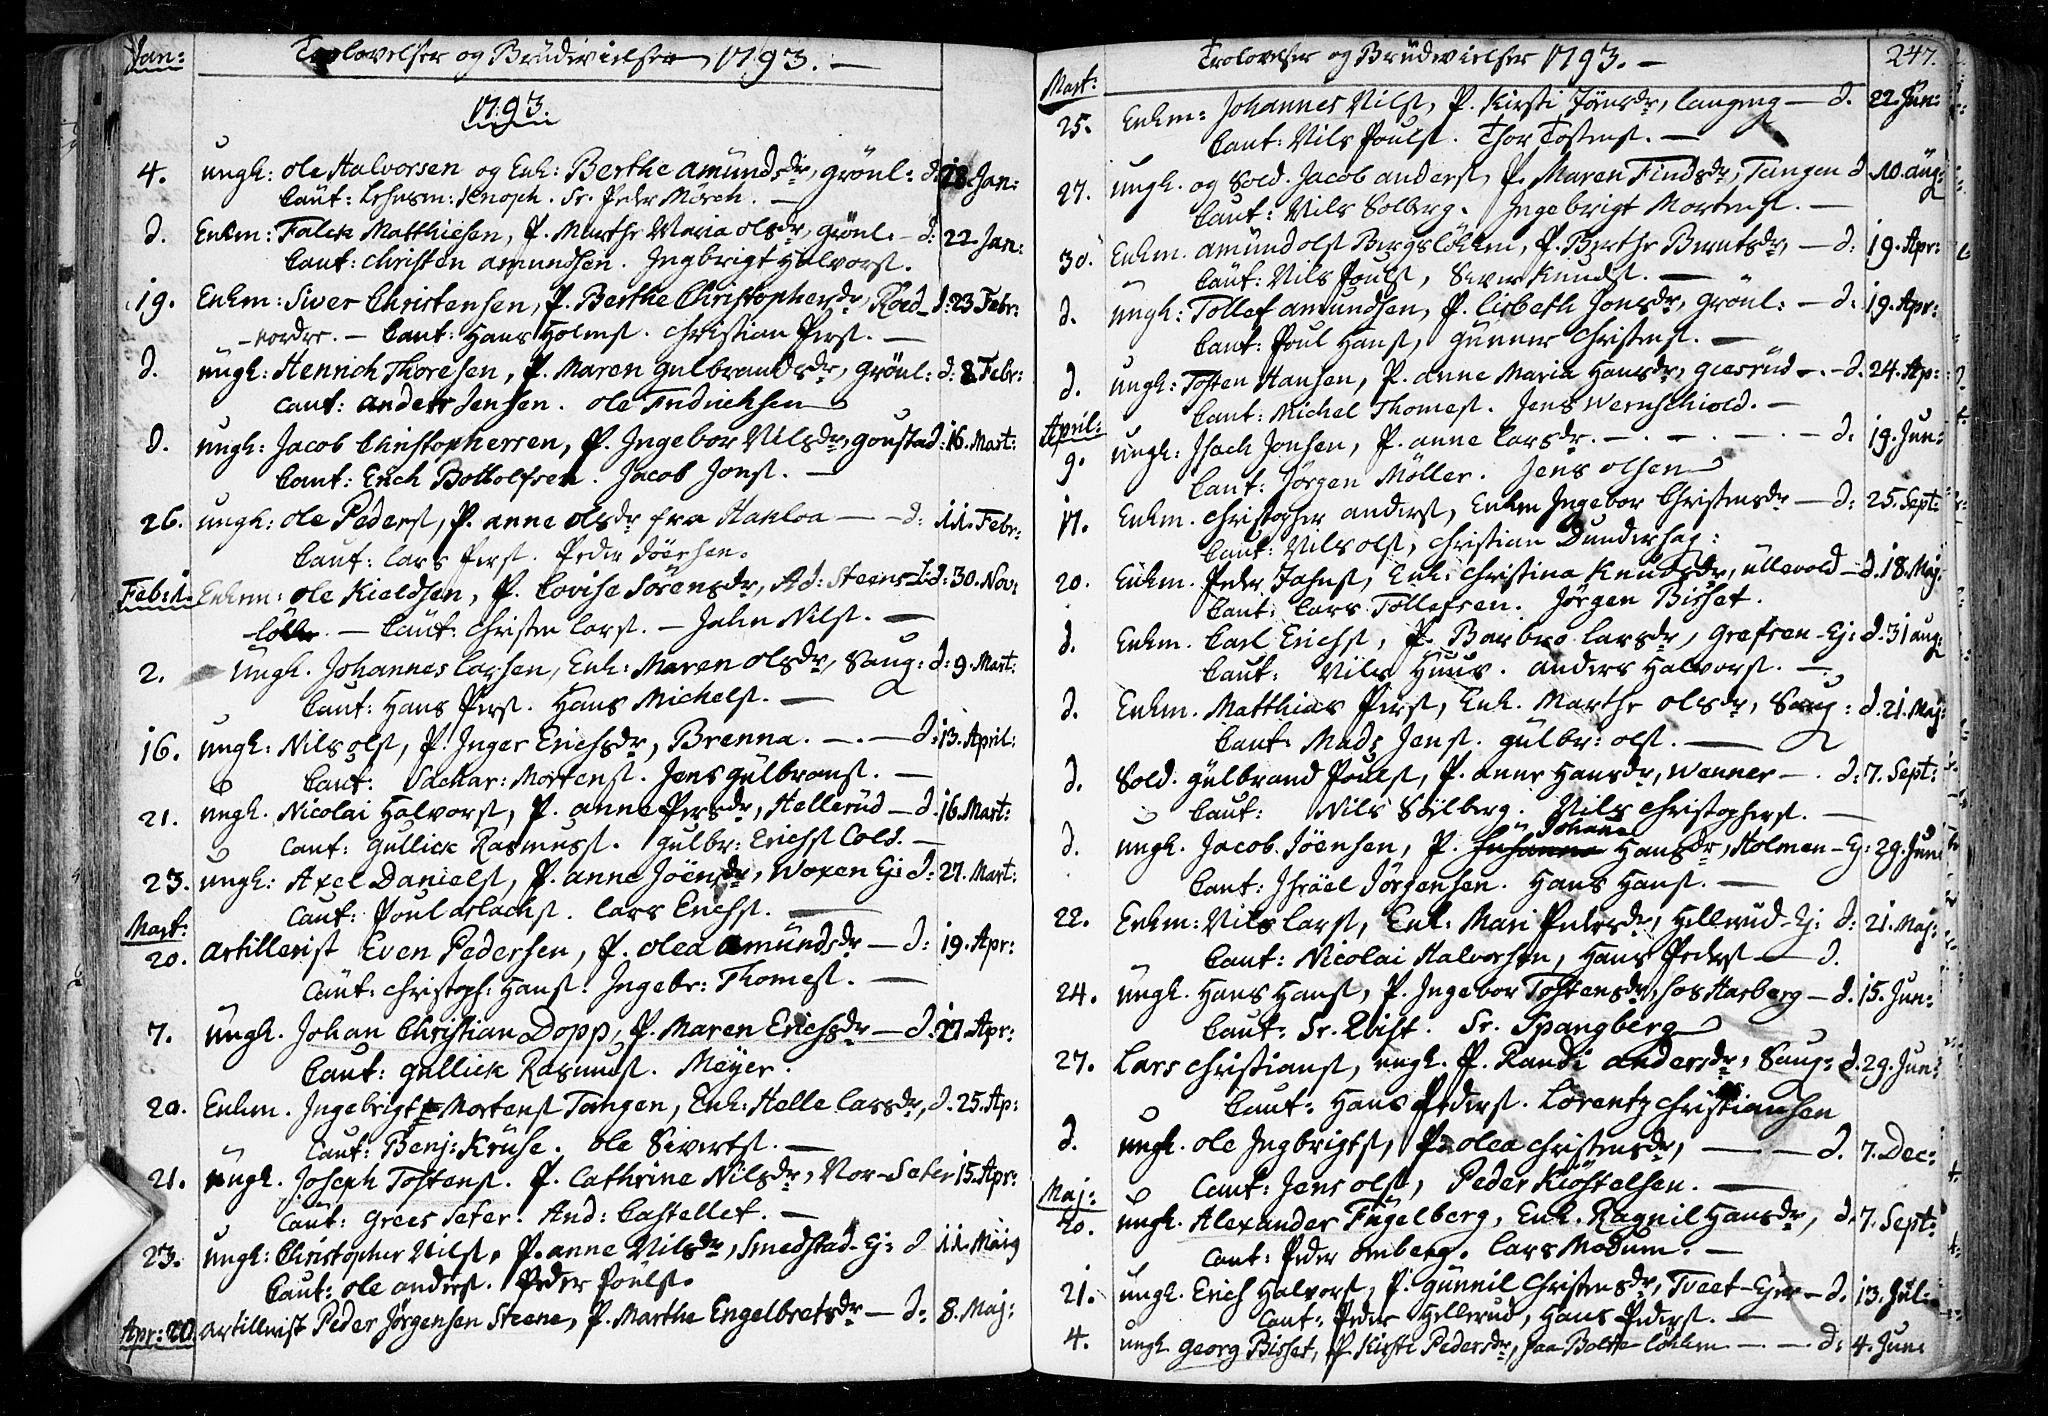 Jan: Trolovelser og Brudevielser 1793. —
1793.
4. ungk: Ole Halvorsen og Enk: Berthe Amundsdr, Grönl: d. 18 Jan:
Caut: Lehnsm: Knoph. Sr. Peder Mörch. —
d. Enkm: Falck Matthiesen, P. Marthe Maria Olsdr, Grönl. — d: 22. Jan:
Caut: Christen Amundsen. Ingbrigt Halvors.
19. Enkm: Siver Christensen, P. Berthe Christophersdr, Röed d: 23 Febr:
nordre. — Caut: Hans Holmst. Christian Perst. —
d. ungk: Henrich Thoresen, P. Maren Gulbrandsdr, Grönl: d: 8 Febr:
Caut: Anders Jensen. Ole Fridrichsen
d. ungk: Jacob Christophersen, P. Ingebor Nilsdr, Goustad: 16. Mart:
Caut: Erich Bottolfsen. Jacob Jonst. —
26. ungk: Ole Pederst, P. Anne Olsdr fra Hakloa — — d: 11. Febr:
Caut: Lars Perst. Peder Jöensen.
Feb: 1. Enkm: Ole Kieldsen, P. Lovise Sörensdr, Ad: Steens L d: 30. Nov:
— Caut: Christen Larst. — Jahn Nilst. —
2. Ungk. Johannes Larsen, Enk: Maren Olsdr, Saug: d: 9. Mart:
Caut: Hans Perst. Hans Michelst. —
16. ungk: Nils Olst, P. Inger Erichsdr, Brenna. — . — d: 13. April:
Caut: Sachar: Mortenst. Jens Gulbranst. —
21. ungk. Nicolai Halvorst, P. Anne Persdr, Hellerud — d. 16. Mart:
Caut: Gullick Rasmusst. Gulbr: Erichst Cold. —
23. ungk: Axel Danielst, P. Anne Jöensdr, Woxen Ej: d: 27. Mart:
Caut: Poul Aslachst. Lars Erichst. —
Mart:
20. Artillerist Even Pedersen, P. Olea Amundsdr — d: 19. Apr:
Caut: Christoph: Hanst. Ingebr: Thomest. —
7. Ungk. Johan Christian Dopp, P. Maren Erichsdr — d. 27. Apr:
Caut: Gullick Rasmusst. Meyer.
20. Enkm. Ingebrigt Mortenst Tangen, Enk: Helle Larsdr, d. 25. Ap:
Caut: Benj: Kruse. Ole Sivertst. —
21. ungk. Joseph Tostenst. P. Cathrine Nilsdr, Nor-Seter 15. Apr:
Caut: Grees Seter. And: Castellet. —
23. ungk: Christopher Nilst, P. Anne Nilsdr, Smedstad-Ej: d 11. Maij
Caut: Ole Anderst. Peder Poulst.
Apr: 20. Artillerist Peder Jörgensen Steene, P. Marthe Engelbretsdr — d: 8. Maj:
Trolovelser og Brudevielser 1793. — 247.
Mart:
25. Enkm: Johannes Nilst, P. Kirsti Jönsdr, Langeng — d. 22. Jun:
Caut: Nils Poulst. Thor Tostenst. —
27. ungk. og Sold. Jacob Anderst, P. Maren Findsdr, Tangen d. 10. Aug:
Caut: Nils Solberg. Ingebrigt Mortenst. —
30. Enkm. Amund Olst Bergslökken, P. Berthe Berntsdr, — d: 19. Apr:
Caut: Nils Poulst, Siver Knudst. —
d. ungk: Tollef Amundsen, P. Lisbeth Jonsdr, Grönl: — d: 19. Apr:
Caut: Poul Hanst, Gunner Christenst. —
d. ungk: Tosten Hansen, P. Anne Maria Hansdr, Giesrud — . — d. 24. Ap:
Caut: Michel Thomest. Jens Wernschiold. —
April:
9. ungk: Isach Jonsen, P. Anne Larsdr. — . — . — d. 19. Jun:
Caut: Jörgen Möller. Jens Olsen
17. Enkm. Christopher Anderst, Enkm Ingebor Christensdr — d: 25. Sept:
Caut: Nils Olst, Christian Dunderhag:
20. Enkm. Peder Jahnst, Enk: Christina Knudsdr, Ullevold — d. 18. Maj:
Caut: Lars Tollefsen. Jörgen Bisset.
d. Enkm. Carl Erichst, P. Barbro Larsdr, Grefsen-Ej: d. 31 Aug:
Caut: Nils Huus. Anders Halvorst. —
d. Enkm. Matthias Perst, Enk. Marthe Olsdr, Saug: d. 21. Maj:
Caut: Mads Jenst. Gulbr: Olst. —
d. Sold. Gulbrand Poulst, P. Anne Hansdr, Wenner — . d: 7. Sept:
Caut: Nils Solberg. Nils Christopherst. —
d. ungk. Jacob Jöensen, P. Johane Hansdr, Holmen-Ej: 29. Jun:
Caut: Israel Jörgensen. Hans Hanst. —
22. Enkm: Nils Larst, Enk: Mari Pedersdr, Hellerud-Ej: d: 21. Maj:
Caut: Nicolai Halvorsen, Hans Pederst — d.
24. ungk. Hans Hanst, P. Ingebor Tostensdr, hos Aarberg — d. 15. Jun:
Caut: Sr. Qvist. Sr. Spangberg
27. Lars Christianst, ungk. P. Randi Andersdr, Saug: d. 29. Jun:
Caut: Hans Pederst. Lorentz Christiansen
d. ungk. Ole Ingbrigtst, P. Olea Christensdr, — — d. 7. Dec:
Caut: Jens Olst, Peder Kiöstelsen. —
Maj:
20. ungk. Alexander Fugelberg, Enk. Ragnil Hansdr, d. 7. Sept:
Caut: Peder Omberg. Lars Modum. —
21. ungk. Erich Halvorst, P. Gunnil Christensdr, Tveet-Ejer — d. 13. Jul:
Caut: Peder Hellerud, Hans Pederst. —
4. ungk Georg Bisset, P. Kirsti Pedersdr, paa Bolte Lökken — — d: 4. Jun: